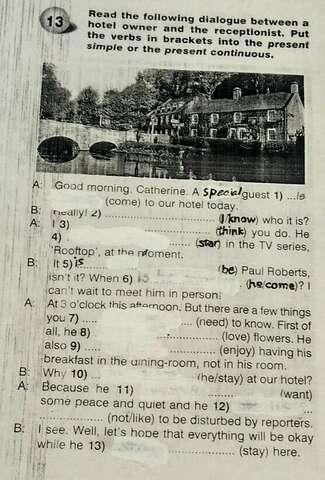 13 Read the following dialogue between a
hotel owner and the receptionist. Put
the verbs in brackets into the present
simple or the present continuous.
A: Good morning, Catherine. A special guest 1) ...is
(come) to our hotel today.
B: Really! 2) ............ (I/know) who it is?
A: I 3) ............ (think) you do. He
4) ............ (star) in the TV series,
'Rooftop', at the moment.
B: It 5) is ............ (be) Paul Roberts,
isn't it? When 6) is ............ (he/come)? I
can't wait to meet him in person!
A: At 3 o'clock this afternoon. But there are a few things
you 7) ..... (need) to know. First of
all, he 8) ..... (love) flowers. He
also 9) ..... (enjoy) having his
breakfast in the dining-room, not in his room.
B: Why 10) .. (he/stay) at our hotel?
A: Because he 11) (want)
some peace and quiet and he 12)
............ (not/like) to be disturbed by reporters.
B: I see. Well, let's hope that everything will be okay
while he 13) ............ (stay) here.